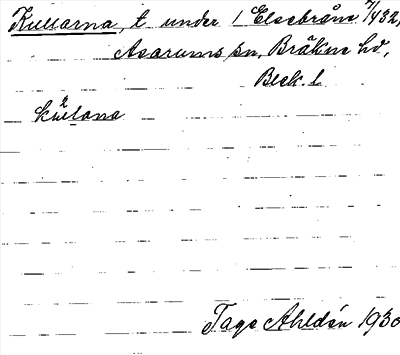 Kullarna, t. under 1 Elsebråne 7/432,
Asarums sn, Bräkne hd,
Blek. l.
kúlana
Tage Ahldén 1930